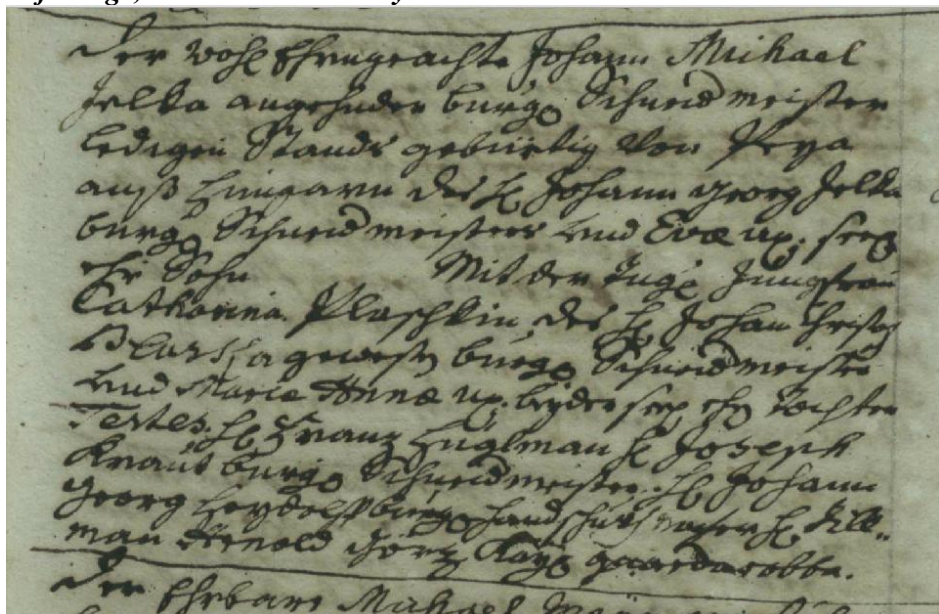 Der wohl Ehrengeachte Johann Michael
Jelka angehnder burg. Schneidmeister
ledigen Stands gebürtig von
auß Hungarn des H. Johann Georg Jelka
burg. Schneidmeisters und Eva ux. seel.
ehl. Sohn Mit der Tug. Jungfrau
Catharina Plaschkin, des H. Johan Christoph
gewesten burg. Schneidmeister
und Maria Anna ux. beyder seel. ehl. Tochter
Testes. H. Franz Huglman H. Joseph
Kraus burg. Schneidmeister. H. Johann
Georg burg. Handschuhmacher H.
man Arnold Kay. guardarobba.
Der Ehrbare Michael